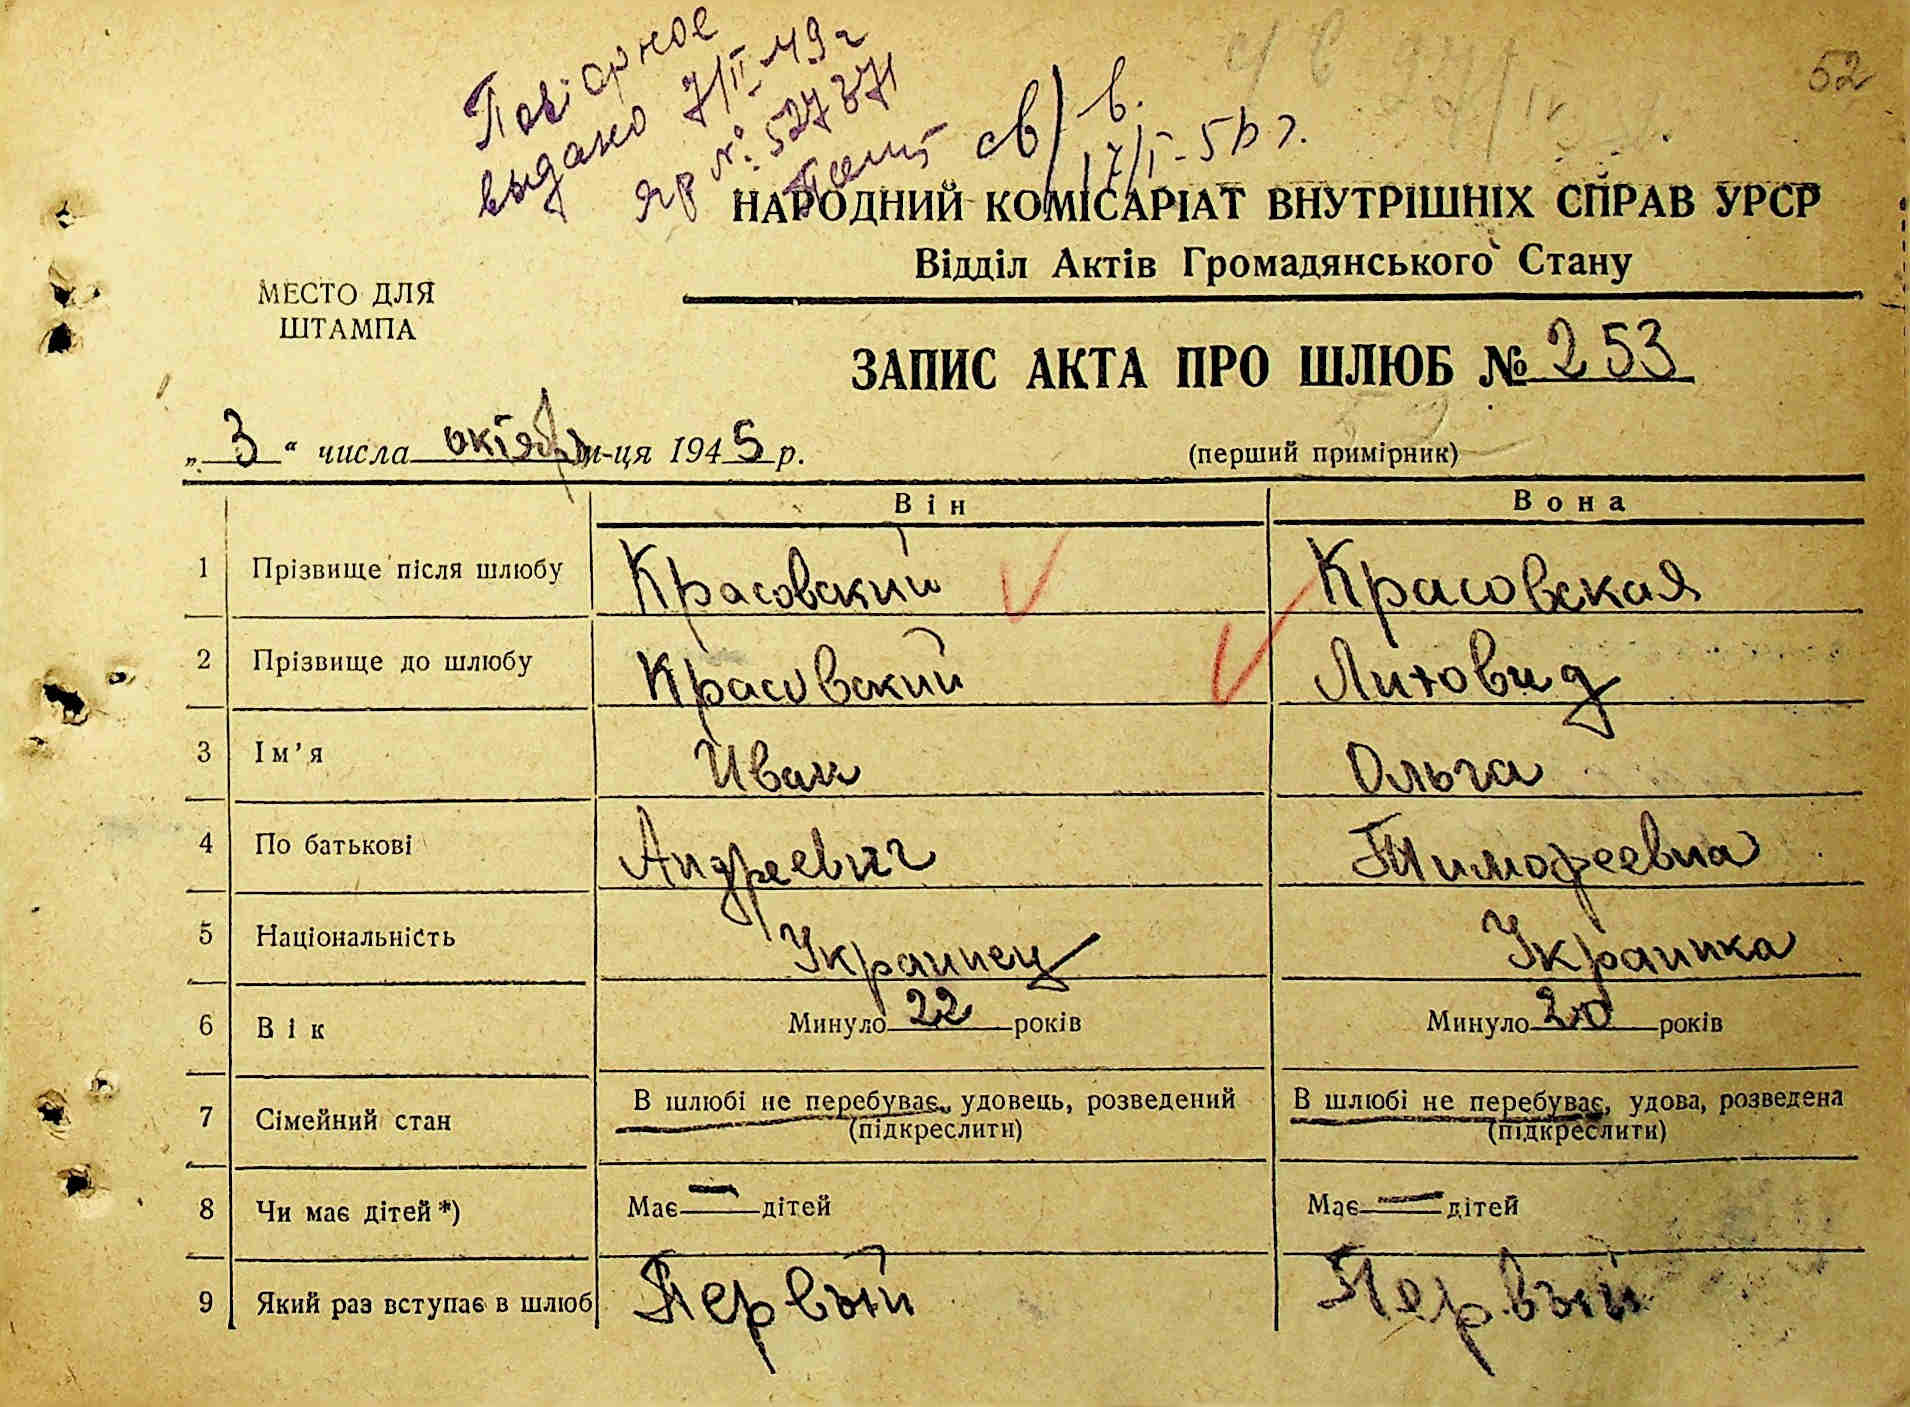 Повiорное
выдано 7/II-49г
яр №: 527371
св/в.
17/I-50 г.
52
НАРОДНИЙ КОМІСАРІАТ ВНУТРІШНІХ СПРАВ УРСР
Відділ Актів Громадянського Стану
МЕСТО ДЛЯ
ШТАМПА
ЗАПИС АКТА ПРО ШЛЮБ № 253
„3“ числа октябр м-ця 1945 р.
(перший примірник)
Він Вона
1 Прізвище після шлюбу Красовский Красовская
2 Прізвище до шлюбу Красовский Литовид
3 Ім’я Иван Ольга
4 По батькові Андреевич Тимофеевна
5 Національність Украинец Украинка
6 Вік Минуло 22 років Минуло 20 років
7 Сімейний стан В шлюбі не перебуває, удовець, розведений В шлюбі не перебуває, удова, розведена
(підкреслити) (підкреслити)
8 Чи має дітей*) Має — дітей Має — дітей
9 Який раз вступає в шлюб Первый Первый